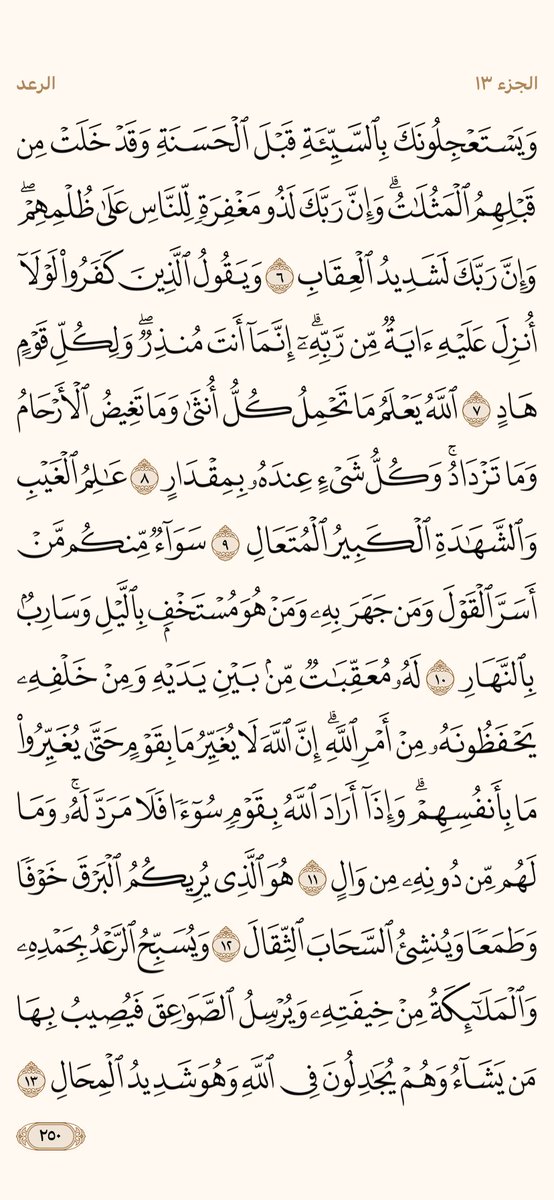 الجزء ١٣
الرعد
وَيَسۡتَعۡجِلُونَكَ بِٱلسَّيِّئَةِ قَبۡلَ ٱلۡحَسَنَةِ وَقَدۡ خَلَتۡ مِن
قَبۡلِهِمُ ٱلۡمَثُلَٰتُۗ وَإِنَّ رَبَّكَ لَذُو مَغۡفِرَةٖ لِّلنَّاسِ عَلَىٰ ظُلۡمِهِمۡۖ
وَإِنَّ رَبَّكَ لَشَدِيدُ ٱلۡعِقَابِ ٦ وَيَقُولُ ٱلَّذِينَ كَفَرُواْ لَوۡلَآ
أُنزِلَ عَلَيۡهِ ءَايَةٞ مِّن رَّبِّهِۦٓۗ إِنَّمَآ أَنتَ مُنذِرٞۖ وَلِكُلِّ قَوۡمٍ
هَادٍ ٧ ٱللَّهُ يَعۡلَمُ مَا تَحۡمِلُ كُلُّ أُنثَىٰ وَمَا تَغِيضُ ٱلۡأَرۡحَامُ
وَمَا تَزۡدَادُۚ وَكُلُّ شَيۡءٍ عِندَهُۥ بِمِقۡدَارٍ ٨ عَٰلِمُ ٱلۡغَيۡبِ
وَٱلشَّهَٰدَةِ ٱلۡكَبِيرُ ٱلۡمُتَعَالِ ٩ سَوَآءٞ مِّنكُم مَّنۡ
أَسَرَّ ٱلۡقَوۡلَ وَمَن جَهَرَ بِهِۦ وَمَنۡ هُوَ مُسۡتَخۡفِۭ بِٱلَّيۡلِ وَسَارِبُۢ
بِٱلنَّهَارِ ١٠ لَهُۥ مُعَقِّبَٰتٞ مِّنۢ بَيۡنِ يَدَيۡهِ وَمِنۡ خَلۡفِهِۦ
يَحۡفَظُونَهُۥ مِنۡ أَمۡرِ ٱللَّهِۗ إِنَّ ٱللَّهَ لَا يُغَيِّرُ مَا بِقَوۡمٍ حَتَّىٰ يُغَيِّرُواْ
مَا بِأَنفُسِهِمۡۗ وَإِذَآ أَرَادَ ٱللَّهُ بِقَوۡمٖ سُوٓءٗا فَلَا مَرَدَّ لَهُۥۚ وَمَا
لَهُم مِّن دُونِهِۦ مِن وَالٍ ١١ هُوَ ٱلَّذِي يُرِيكُمُ ٱلۡبَرۡقَ خَوۡفٗا
وَطَمَعٗا وَيُنشِئُ ٱلسَّحَابَ ٱلثِّقَالَ ١٢ وَيُسَبِّحُ ٱلرَّعۡدُ بِحَمۡدِهِۦ
وَٱلۡمَلَٰٓئِكَةُ مِنۡ خِيفَتِهِۦ وَيُرۡسِلُ ٱلصَّوَٰعِقَ فَيُصِيبُ بِهَا
مَن يَشَآءُ وَهُمۡ يُجَٰدِلُونَ فِي ٱللَّهِ وَهُوَ شَدِيدُ ٱلۡمِحَالِ ١٣
٢٥٠